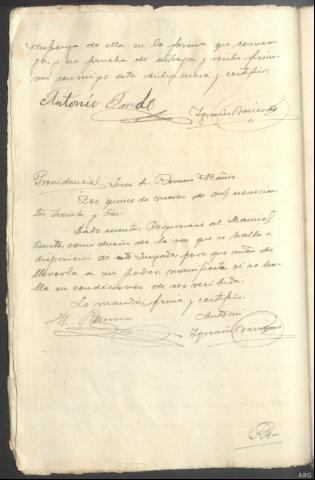 disponga de ella en la forma que convenga
y en prueba de entrega y recibo firma
conmigo esta diligencia y certifico
Antonio Ignacio
Providencia Juez
quince de marzo de mil novecien
tos treinta y tres.
Dado cuenta; Requiérase al Manuel
como dueño de la res que se halla a
disposición de este Juzgado, para que antes de
llevarla a su poder, manifieste si se ha
lla en condiciones de ser recibida.
Lo mandó, firma y certifico.
M. Ramon Antemi
Ignacio
ARG